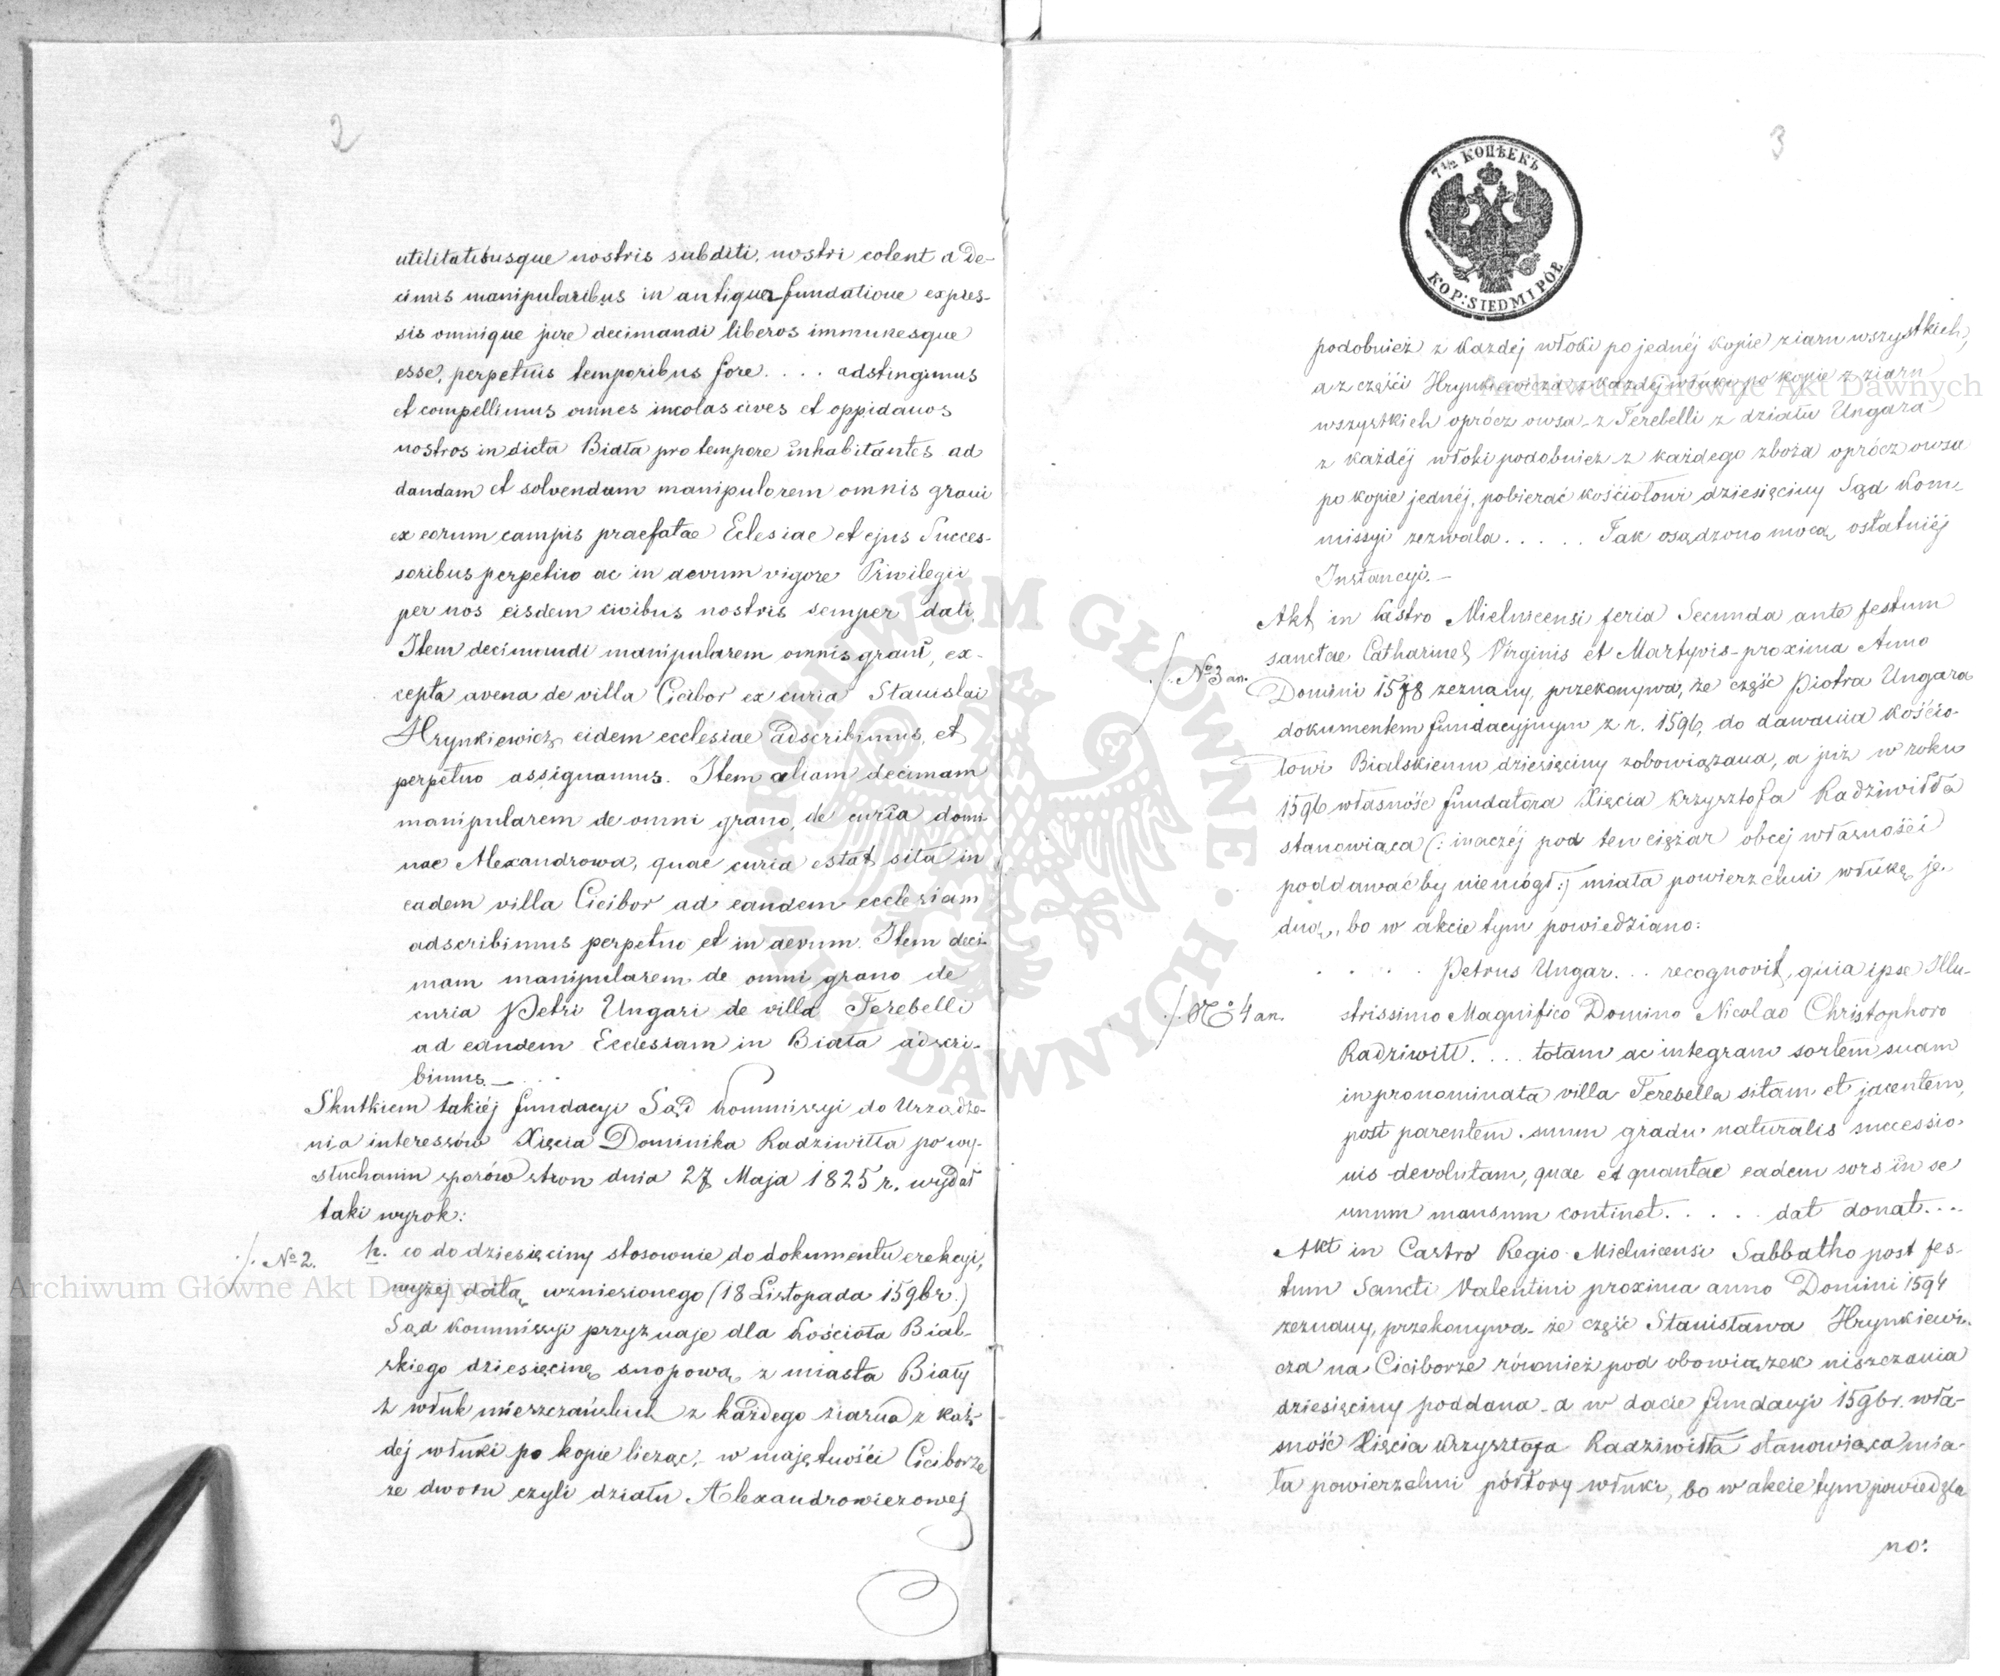 2
utilitatibusque nostris subditi, nostri colent a de-
cimis manipularibus in antiqua fundatione expres-
sis omnique jure decimandi liberos immunesque
esse, perpetuis temporibus fore . . . . adstingimus
et compellimus omnes incolas cives et oppidanos
nostros in dicta Biała pro tempore inhabitantes ad
dandam et solvendam manipularem omnis grani
ex eorum campis praefatae Eclesiae et ejus Succes-
soribus perpetuo ac in aevum vigore Privilegii
per nos eisdem civibus nostris semper dati,
Item decimandi manipularem omnis grani, ex-
cepta avena de villa Cicibor ex curia Stanislai
Hrynkiewicz eidem ecclesiae adscribimus, et
perpetuo assignamus. Item aliam decimam
manipularem de omni grano, de curia domi-
nae Alexandrowa, quae curia estat sita in
eadem villa Cicibor ad eandem ecclesiam
adscribimus perpetuo et in aevum. Item deci-
mam manipularem de omni grano de
curia Petri Ungari de villa Terebelli
ad eandem Ecclesiam in Biała adscri-
bimus. — . . .
Skutkiem takiéj fundacyi Sąd Kommissyi do Urządze-
nia interessów Xięcia Dominika Radziwiłła po wy-
słuchaniu sporów stron dnia 27 Maja 1825 r. wydał
taki wyrok:
No 2. h. co do dziesięciny stosownie do dokumentu erekcyi,
wyżej datą wzniesionego (18 Listopada 1596 r.)
Sąd Kommissyi przyznaje dla Kościoła Bial-
skiego dziesięcinę snopową z miasta Biały
z włuk mieszczańskich z każdego ziarna z każ-
déj włuki po kopie licząc, w majętności Ciciborze
ze dworu czyli działu Alexandrowiczowej
3
7 1/2 КОПѢЕКЪ
KOP: SIEDMIPÓŁ
podobnież z każdej włóki po jednéj kopie ziarn wszystkich,
a z części Hrynkiewicza z każdéj włuki po kopie z ziarn
wszystkich oprócz owsa - z Terebelli z działu Ungara
z każdéj włoki podobnież z każdego zboża oprócz owsa
po kopie jednéj, pobierać kościołowi dziesięciny Sąd Kom-
missyi zezwala . . . . . Tak osądzono mocą ostatniéj
Instancyi. —
Akt in Castro Mielnicensi feria Secunda ante festum
sanctae Catharinae Virginis et Martyris proxima Anno
No 3 an. Domini 1578 zeznany, przekonywa, że część Piotra Ungara
dokumentem fundacyjnym z r. 1596, do dawania kościo-
łowi Bialskiemu dziesięciny zobowiązana, a już w roku
1596 własność fundatora Xięcia Krzysztofa Radziwiłła
stanowiąca (: inaczéj pod ten ciężar obcej własności
poddawać by nie mógł :) miała powierzchni włukę je-
dną, bo w akcie tym powiedziano:
. . . . Petrus Ungar . . . recognovit, quia ipse Illu-
No 4 an. strissimo Magnifico Domino Nicolao Christophoro
Radziwiłł . . . . totam ac integram sortem suam
in pronominata villa Terebella sitam et jacentem,
post parentem suum gradu naturalis successio-
nis devolutam, quae et quantae eadem sors in se
unum mansum continet . . . . . dat donat . . . .
Akt in Castro Regio Mielnicensi Sabbatho post fes-
tum Sancti Valentini proxima anno Domini 1594
zeznany, przekonywa - że część Stanisława Hrynkiewi-
cza na Ciciborze również pod obowiązek uiszczania
dziesięciny poddana - a w dacie fundacyi 1596 r. wła-
sność Xięcia Krzysztofa Radziwiłła stanowiąca mia-
ła powierzchni półtory włuki, bo w akcie tym powiedzia-
no:
Archiwum Główne Akt Dawnych
Archiwum Główne Akt Dawnych
ARCHIWUM GŁÓWNE AKT DAWNYCH